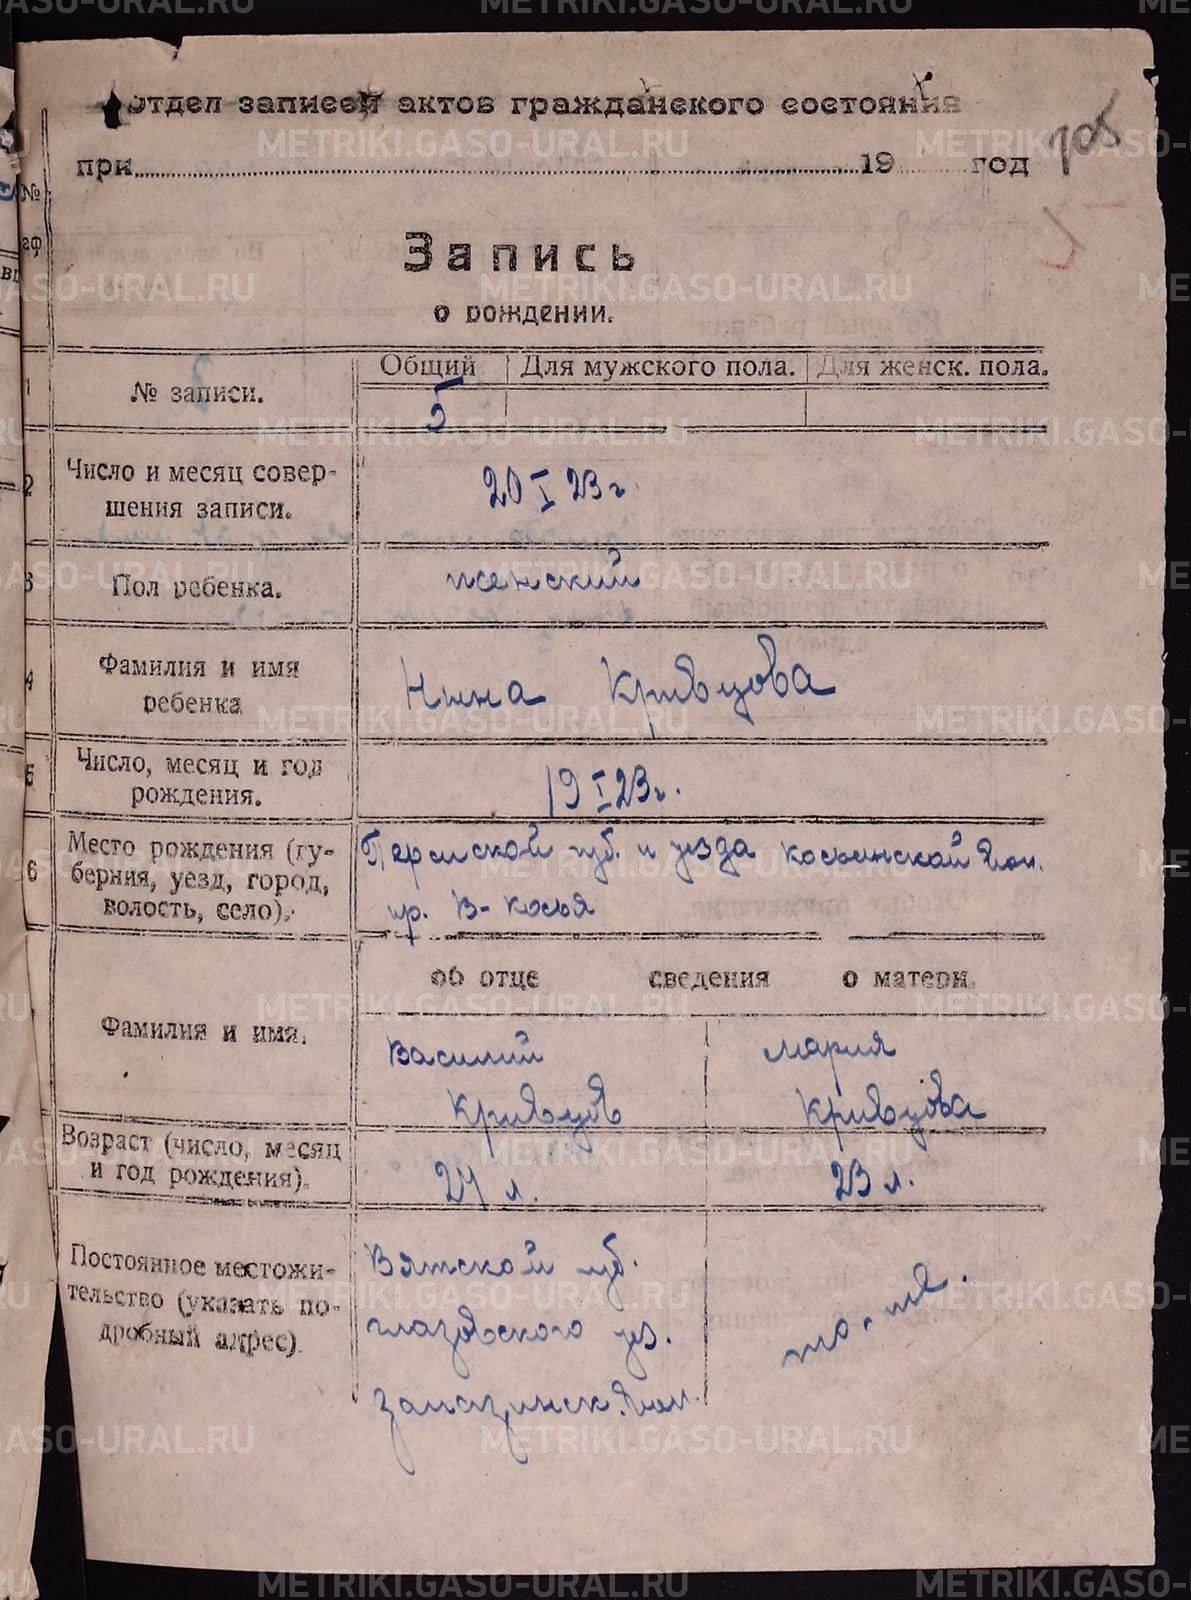 отдел записей актов гражданского состояния
при 19 год 105
Запись
о рождении.
1 № записи. Общий Для мужского пола. Для женск. пола.
5
2 Число и месяц совер-
шения записи.
20 I 23 г.
3 Пол ребенка. женский
4 Фамилия и имя
ребенка
Нина Кривцова
5 Число, месяц и год
рождения.
19 I 23 г.
6 Место рождения (гу-
берния, уезд, город,
волость, село).
Пермской губ. и уезда Косьинской вол.
пр. В-Косья
об отце сведения о матери.
Фамилия и имя.
Василий Мария
Кривцов Кривцова
Возраст (число, месяц
и год рождения).
24 л. 23 л.
Постоянное местожи-
тельство (указать по-
дробный адрес)
Вятской губ.
Глазовского уез.
вол.
то-же.
METRIKI.GASO-URAL.RU